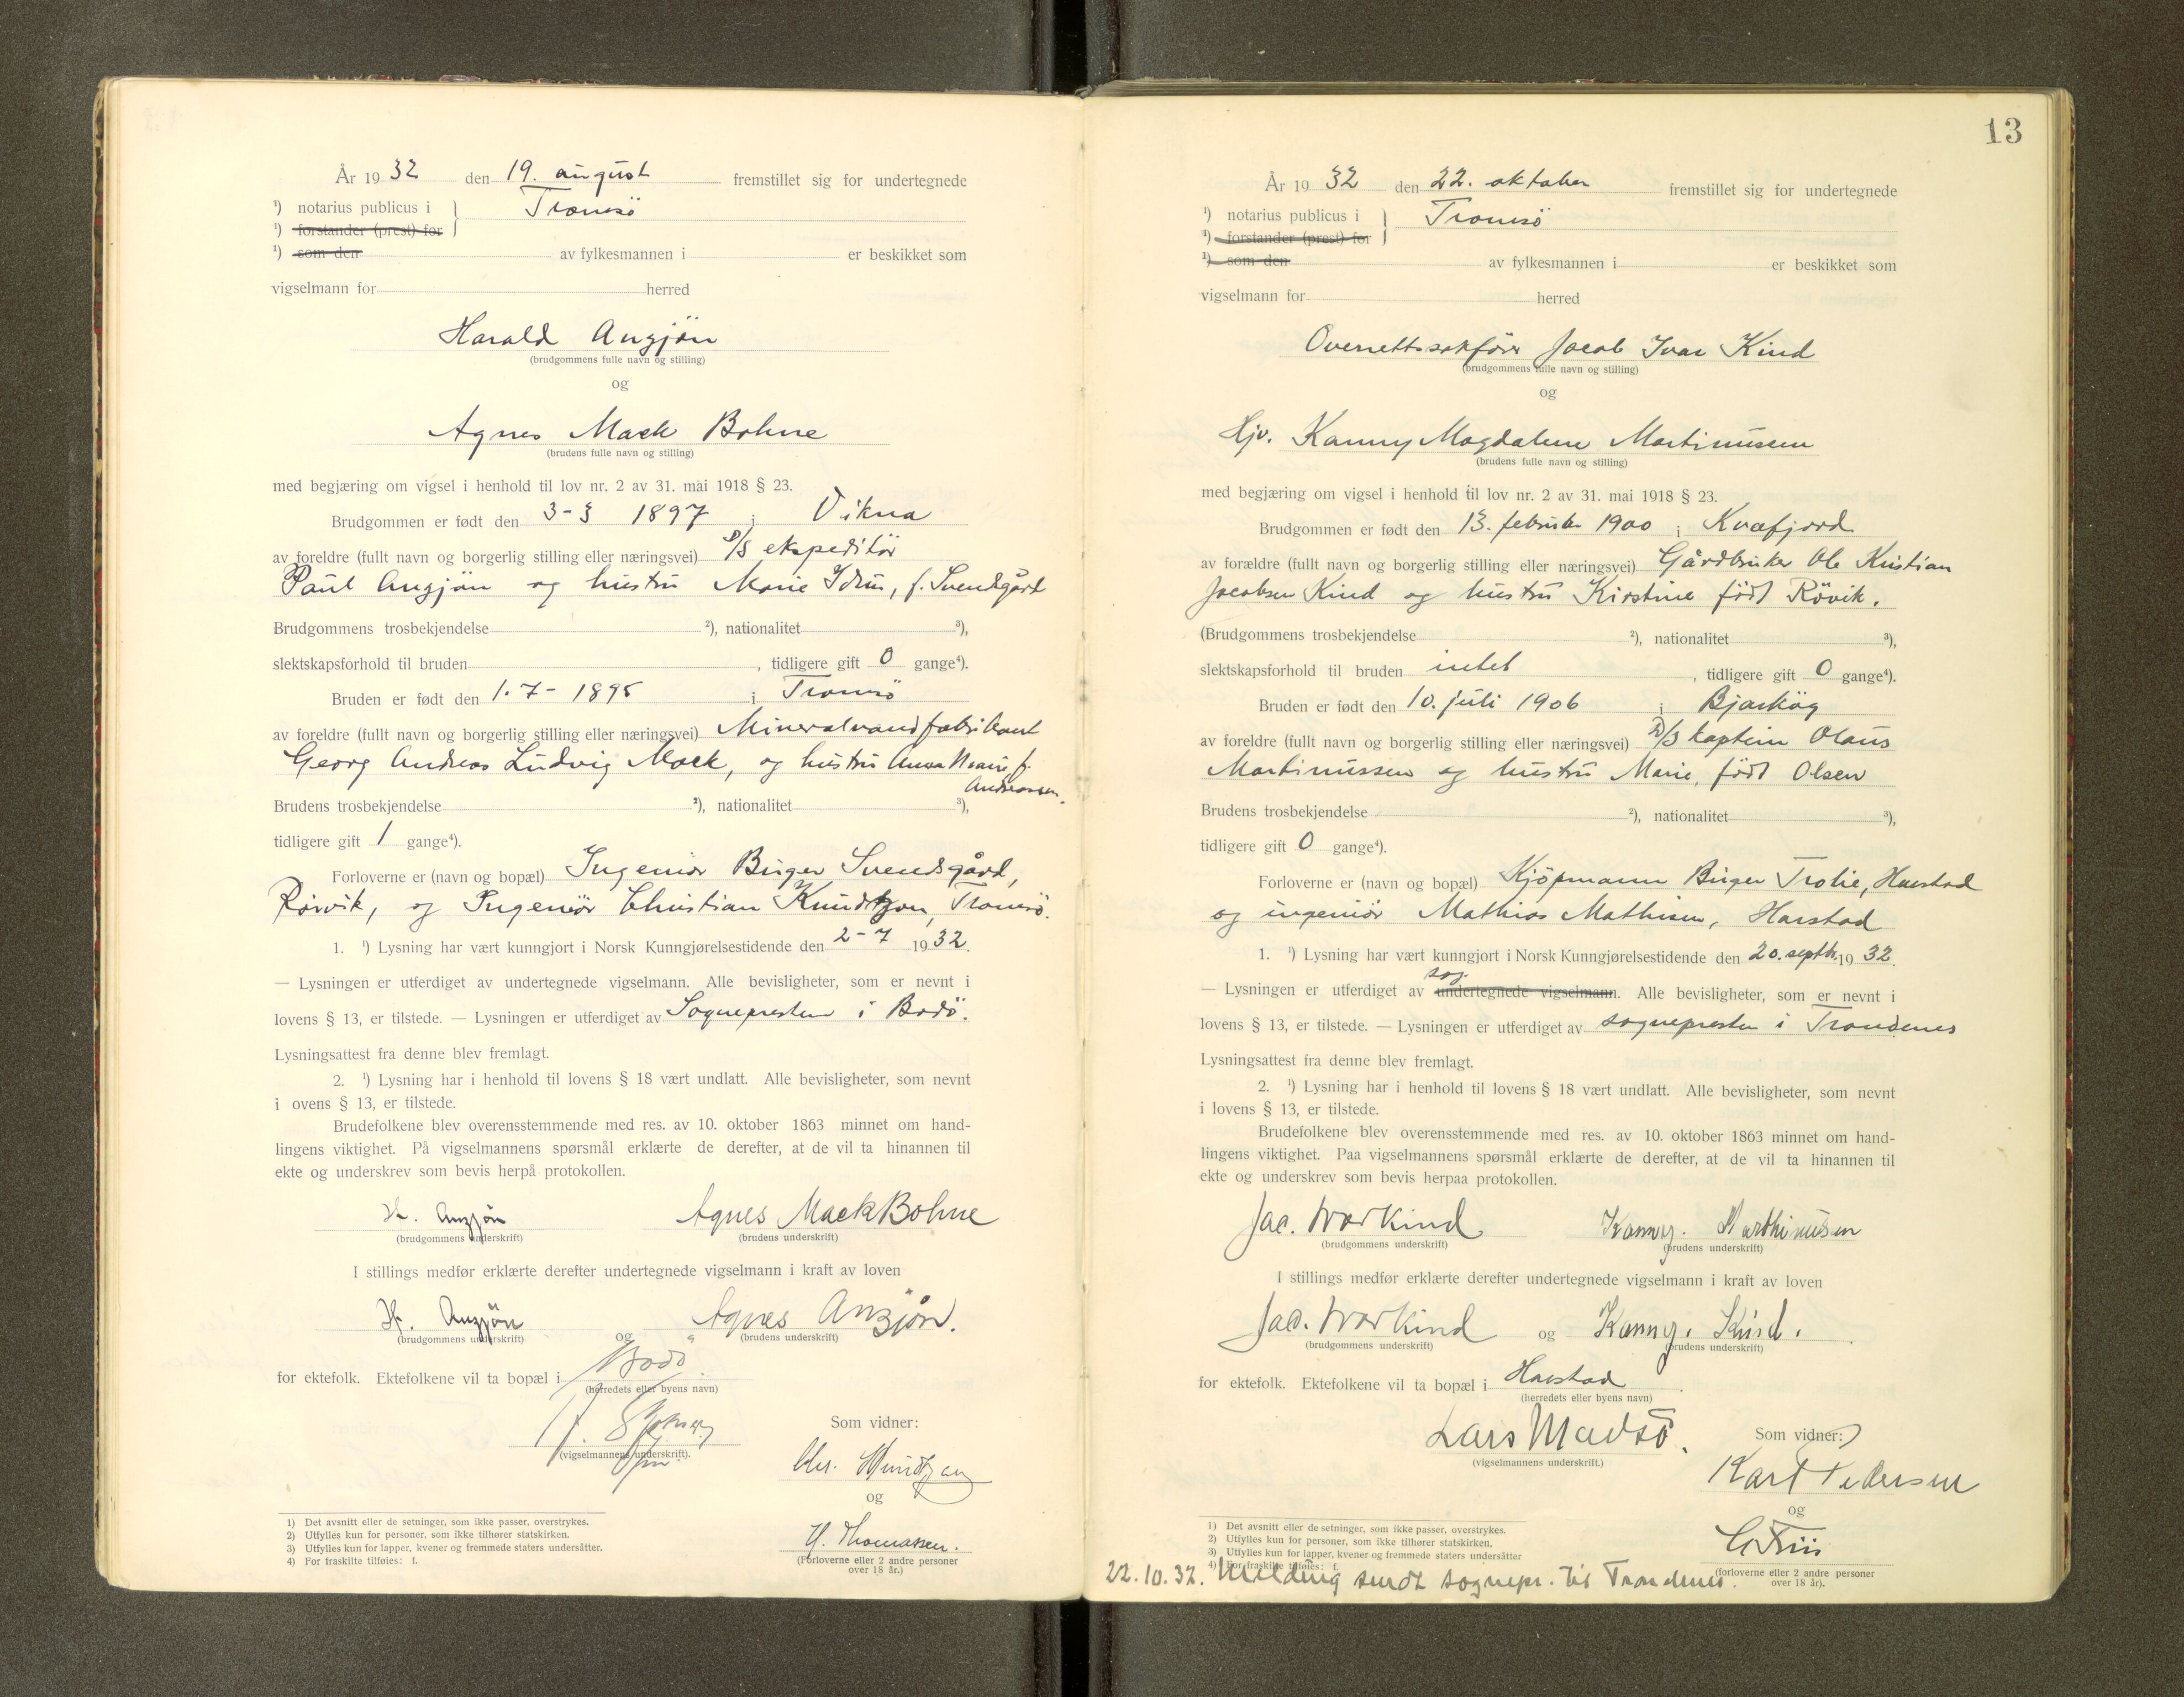 År 1932 den 19. august fremstillet sig for undertegnede
1) notarius publicus i Tromsö
1) forstander (prest) for
1) som den av fylkesmannen i er beskikket som
vigselmann for herred
Harald Angjön
(brudgommens fulle navn og stilling)
og
Agnes Mack Bohne
(brudens fulle navn og stilling)
med begjæring om vigsel i henhold til lov nr. 2 av 31. mai 1918 § 23.
Brudgommen er født den 3-3 1897 i Vikna
av foreldre (fullt navn og borgerlig stilling eller næringsvei) D/S ekspeditör
Paul Angjön og hustru Marie Idun, f. Svendsgård
Brudgommens trosbekjendelse 2), nationalitet 3),
slektskapsforhold til bruden , tidligere gift 0 gange4).
Bruden er født den 1.7-1895 i Tromsö
av foreldre (fullt navn og borgerlig stilling eller næringsvei) Mineralvandfabrikant
Georg Andreas Ludvig Mack, og hustru Anna Marie f.
Andreassen.
Brudens trosbekjendelse 2), nationalitet 3),
tidligere gift 1 gange4).
Forloverne er (navn og bopæl) Ingeniör Birger Svendsgård,
Rörvik, og Ingeniör Christian Knudtzon, Tromsö.
1. 1) Lysning har vært kunngjort i Norsk Kunngjørelsestidende den 2-7 1932.
— Lysningen er utferdiget av undertegnede vigselmann. Alle bevisligheter, som er nevnt i
lovens § 13, er tilstede. — Lysningen er utferdiget av Sognepresten i Bodö.
Lysningsattest fra denne blev fremlagt.
2. 1) Lysning har i henhold til lovens § 18 vært undlatt. Alle bevisligheter, som nevnt
i ovens § 13, er tilstede.
Brudefolkene blev overensstemmende med res. av 10. oktober 1863 minnet om hand-
lingens viktighet. På vigselmannens spørsmål erklærte de derefter, at de vil ta hinannen til
ekte og underskrev som bevis herpå protokollen.
H. Angjön Agnes Mack Bohne
(brudgommens underskrift) (brudens underskrift)
I stillings medfør erklærte derefter undertegnede vigselmann i kraft av loven
H. Angjön og Agnes Angjön.
(brudgommens underskrift) (brudens underskrift)
for ektefolk. Ektefolkene vil ta bopæl i Bodö
(herredets eller byens navn)
Som vidner:
(vigselmannens underskrift).
Chr. Knudtzon
og
H. Thomassen.
(Forloverne eller 2 andre personer
over 18 år.)
1) Det avsnitt eller de setninger, som ikke passer, overstrykes.
2) Utfylles kun for personer, som ikke tilhører statskirken.
3) Utfylles kun for lapper, kvener og fremmede staters undersåtter.
4) For fraskilte tilføies: f.
13
År 1932 den 22. oktober fremstillet sig for undertegnede
1) notarius publicus i Tromsö
1) forstander (prest) for
1) som den av fylkesmannen i er beskikket som
vigselmann for herred
Overrettssakförer Jacob Ivar Kind
(brudgommens fulle navn og stilling)
og
Hjv. Kanny Magdalene Martinussen
(brudens fulle navn og stilling)
med begjæring om vigsel i henhold til lov nr. 2 av 31. mai 1918 § 23.
Brudgommen er født den 13. februar 1900 i Kvæfjord
av forældre (fullt navn og borgerlig stilling eller næringsvei) Gårdbruker Ole Kristian
Jacobsen Kind og hustru Kirstine född Rövik.
(Brudgommens trosbekjendelse 2), nationalitet 3),
slektskapsforhold til bruden intet , tidligere gift 0 gange4).
Bruden er født den 10. juli 1906 i Bjarköy
av foreldre (fullt navn og borgerlig stilling eller næringsvei) D/S kaptein Olaus
Martinussen og hustru Marie, född Olsen
Brudens trosbekjendelse 2), nationalitet 3),
tidligere gift 0 gange4).
Forloverne er (navn og bopæl) Kjöpmann Birger Trolie, Harstad
og ingeniör Mathias Mathisen, Harstad
1. 1) Lysning har vært kunngjort i Norsk Kunngjørelsestidende den 20. septbr. 1932.
sog.
— Lysningen er utferdiget av undertegnede vigselmann. Alle bevisligheter, som er nevnt i
lovens § 13, er tilstede. — Lysningen er utferdiget av sognepresten i Trondenes
Lysningsattest fra denne blev fremlagt.
2. 1) Lysning har i henhold til lovens § 18 vært undlatt. Alle bevisligheter, som nevnt
i lovens § 13, er tilstede.
Brudefolkene blev overensstemmende med res. av 10. oktober 1863 minnet om hand-
lingens viktighet. Paa vigselmannens spørsmål erklærte de derefter, at de vil ta hinannen til
ekte og underskrev som bevis herpaa protokollen.
Jac. Ivar Kind Kanny. Marthinussen
(brudgommens underskrift) (brudens underskrift)
I stillings medfør erklærte derefter undertegnede vigselmann i kraft av loven
Jac. Ivar Kind og Kanny. Kind.
(brudgommens underskrift) (brudens underskrift)
for ektefolk. Ektefolkene vil ta bopæl i Harstad
(herredets eller byens navn)
Lars Madsö. Som vidner:
(vigselmannens underskrift.)
Karl Pedersen
og
G Friis
(forloverne eller 2 andre personer
over 18 år).
1) Det avsnitt eller de setninger, som ikke passer, overstrykes.
2) Utfylles kun for personer, som ikke tilhører statskirken.
3) Utfylles kun for lapper, kvener og fremmede staters undersåtter
4) For fraskilte tilføies: f.
22.10.32. Melding sendt sognepr. til Trondenes.